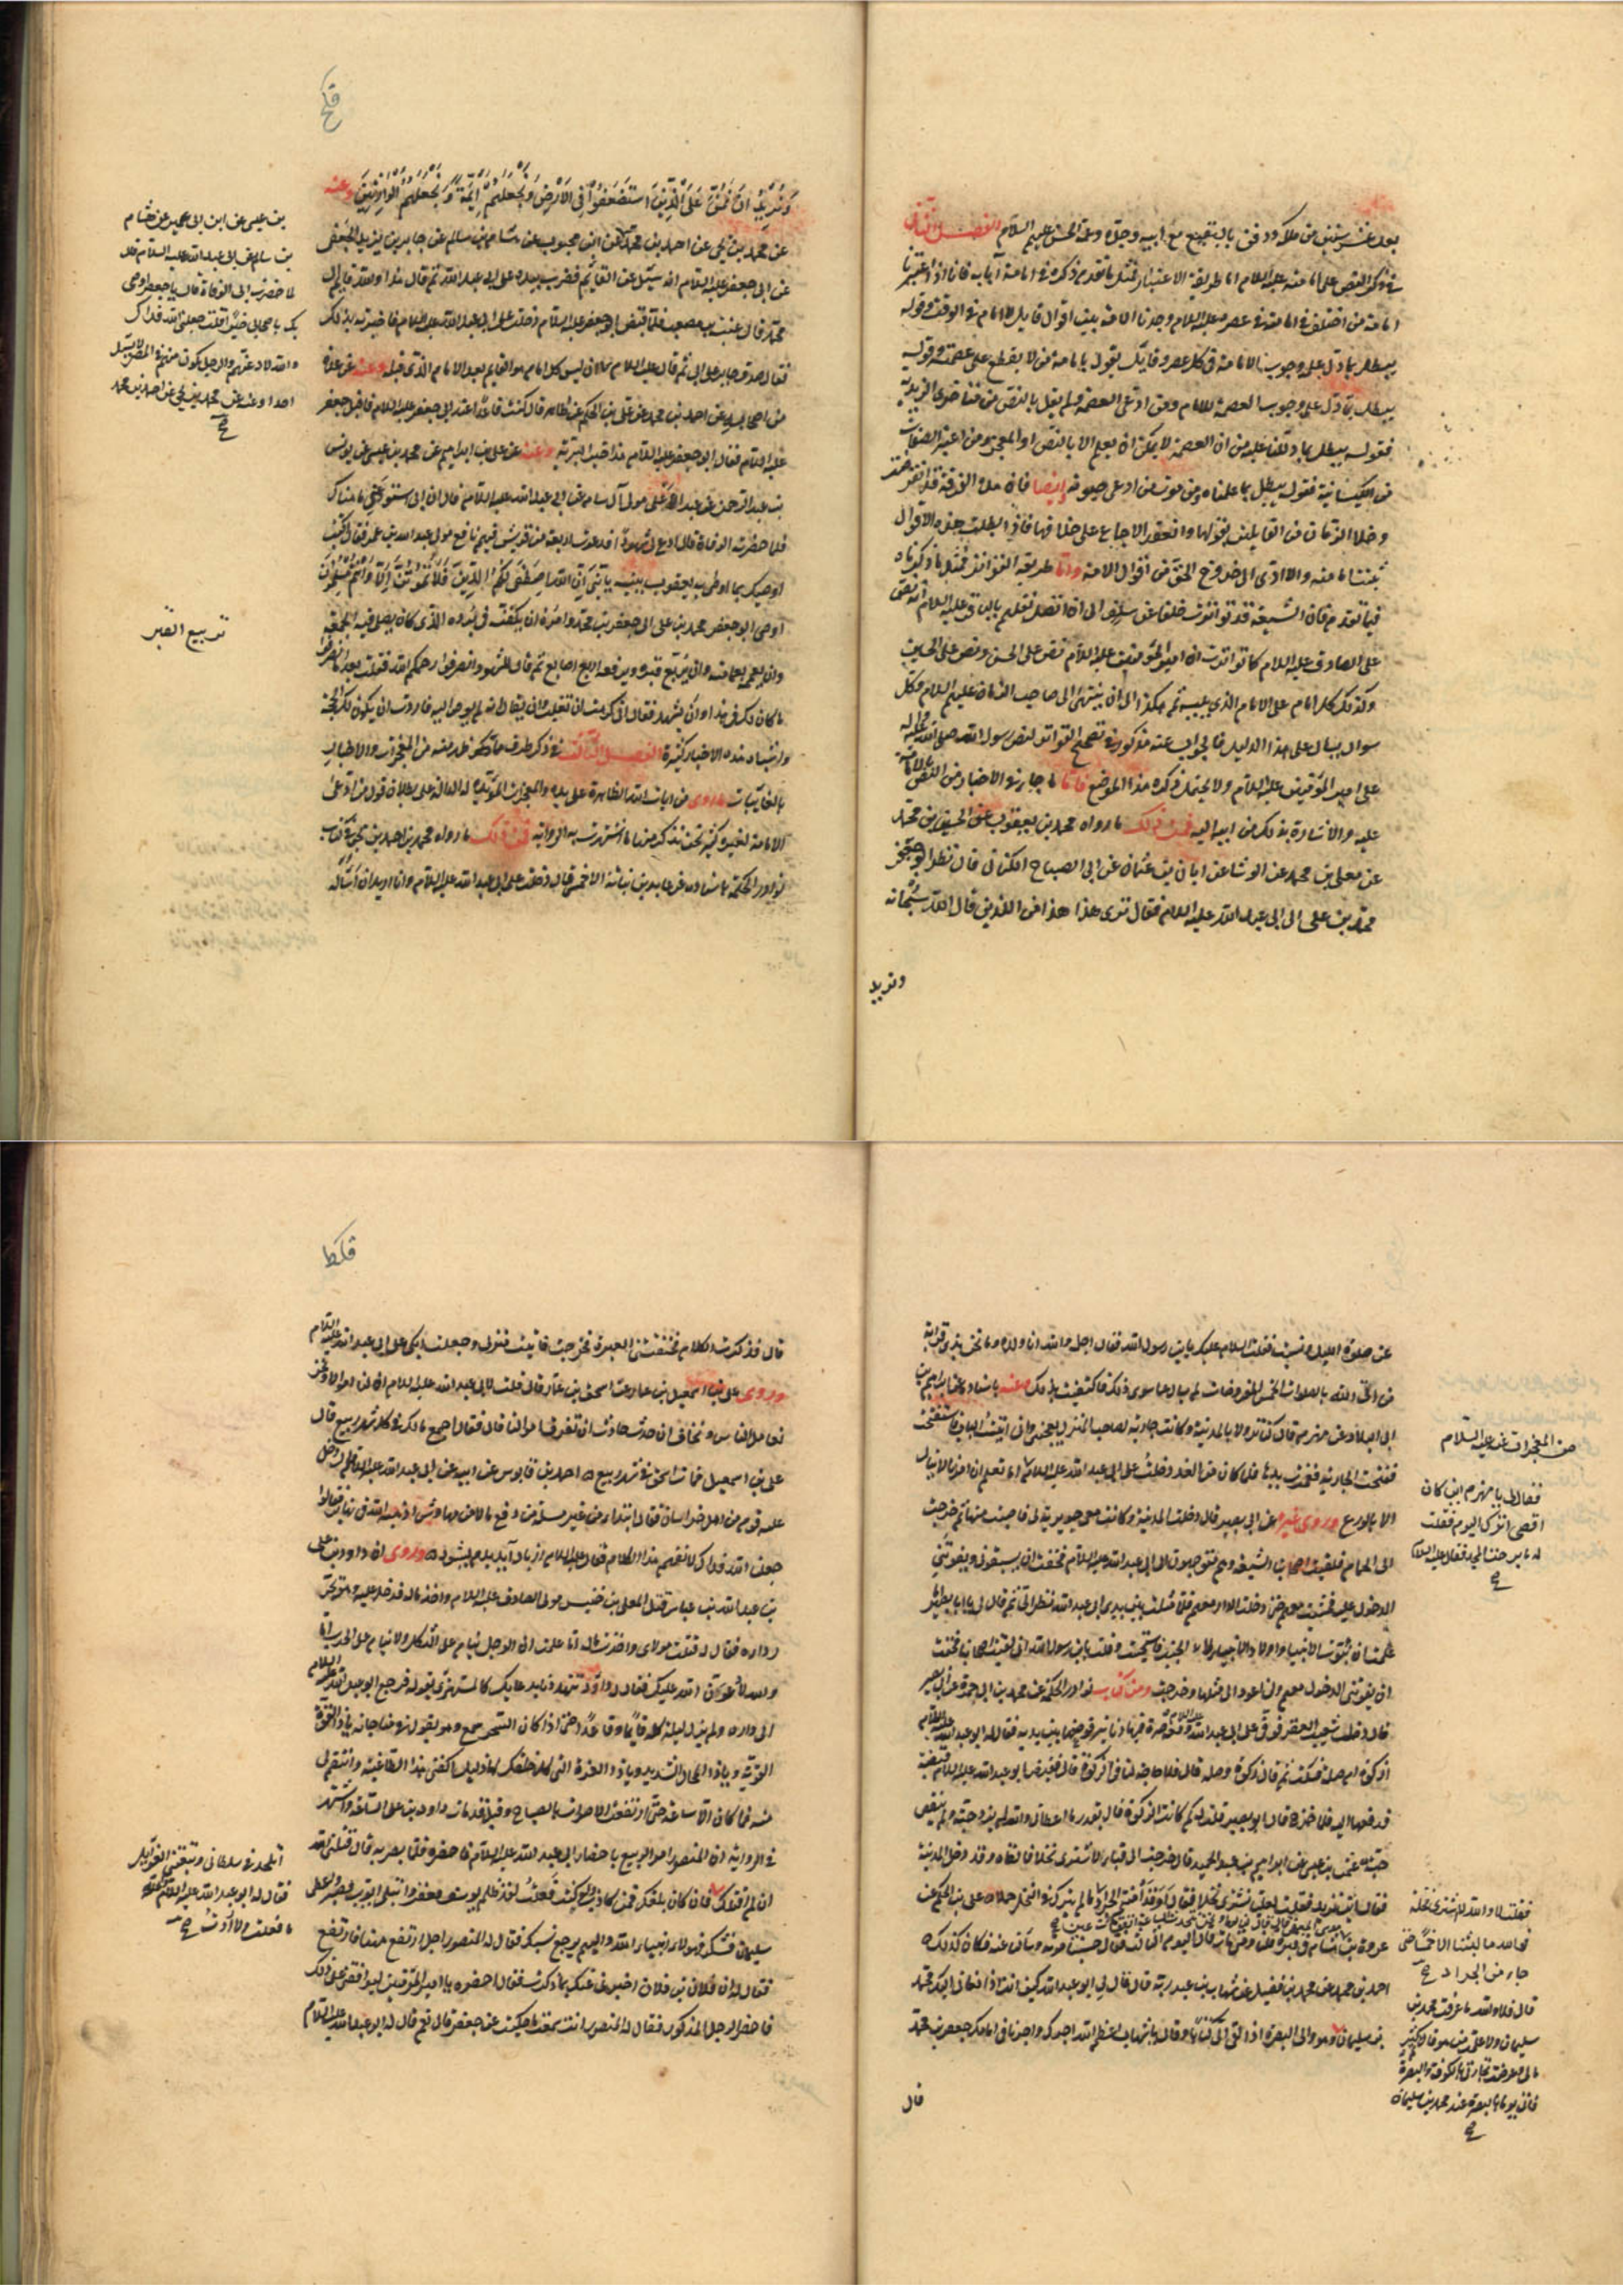 بعد عشر سنين من ملكه ودفن بالبقيع مع ابيه وجده وعمه الحسن عليهم السلام الفصل الثاني
في ذكر النص على امامته عليه السلام اما طريقة الاعتبار فمثل ما تقدم ذكره في امامة آبائه فانا اذا اعتبرنا
امامة من اختلف في امامته في عصره عليه السلام وجدنا الامة بين اقوال قايل لا امام في الوقت وقوله
يبطل بما دل على وجوب الامامة في كل عصر وقايل يقول بامامة من لا يقطع على عصمته وقوله
يبطل بما دل على وجوب العصمة للامام ومن ادعى العصمة ولم يقل بالنص من متاخري الزيدية
فقوله يبطل بما دللنا عليه من ان العصمة لا يمكن ان يعلم الا بالنص او المعجز ومن اعتبر الصفات
من الكيسانية فقوله يبطل بما علمناه من موت من ادعى حيوته وايضا فان هذه الفرقة قد انقرضت
وخلا الزمان من القايلين بقولها وانعقد الاجماع على خلافها فاذا بطلت هذه الاقوال
ثبتت امامته والا ادى الى خروج الحق من اقوال الامة واما طريقة التواتر فمثل ما ذكرناه
فيما تقدم فان الشيعة قد تواترت خلفا عن سلف الى ان اتصل نقلهم بالباقر عليه السلام انه نص
على الصادق عليه السلام كما تواترت ان امير المؤمنين عليه السلام نص على الحسن ونص على الحسين
وكذلك كل امام على الامام الذي يليه ثم هكذا الى ان ينتهى الى صاحب الزمان عليهم السلام فكل
سوال يسال على هذا الدليل فالجواب عنه مذكور في تصحيح التواتر لنص رسول الله صلى الله عليه واله
على امير المؤمنين عليه السلام ولا يحتمل ذكره هذا الموضع فاما ما جاء من الاخبار في النص بالامامة
عليه والاشارة بذلك من ابيه اليه فمن ذلك ما رواه محمد بن يعقوب عن الحسين بن محمد
عن معلى بن محمد عن الوشا عن ابان بن عثمان عن ابى الصباح الكناني قال نظر ابو جعفر
محمد بن على الى ابى عبد الله عليه السلام فقال ترى هذا هذا من الذين قال الله سبحانه
ونريد
قكح
وَنُرِيدُ اَنْ نَمُنَّ عَلَى الَّذِينَ اسْتُضْعِفُوا فِى الْاَرْضِ وَنَجْعَلَهُمْ اَئِمَّةً وَنَجْعَلَهُمُ الْوَارِثِينَ وعنه
عن محمد بن يحيى عن احمد بن محمد عن ابن محبوب عن هشام بن سالم عن جابر بن يزيد الجعفي
عن ابى جعفر عليه السلام انه سئل عن القايم فضرب بيده على ابى عبد الله ثم قال هذا والله قايم آل
محمد قال عنبسة بن مصعب فلما قبض ابو جعفر عليه السلام دخلت على ابى عبد الله عليه السلام فاخبرته بذلك
فقال صدق جابر على ابى ثم قال عليه السلام ترون ان ليس كل امام هو القايم بعد الامام الذي قبله وعنه عن عدة
من اصحابه عن احمد بن محمد عن على بن الحكم عن طاهر قال كنت قاعدا عند ابى جعفر عليه السلام فاقبل جعفر
عليه السلام فقال ابو جعفر عليه السلام هذا خير البرية وعنه عن على بن ابراهيم عن محمد بن عيسى عن يونس
بن عبد الرحمن عن عبد الاعلى مولى آل سام عن ابى عبد الله عليه السلام قال ان ابى استودعني ما هناك
فلما حضرته الوفاة قال ادع لى شهودا فدعوت اربعة من قريش فيهم نافع مولى عبد الله بن عمر فقال اكتب
اوصيك بما اوصى به يعقوب بنيه يا بني ان الله اصطفى لكم الدين فلا تموتن الا وانتم مسلمون
اوصى ابو جعفر محمد بن على الى جعفر بن محمد وامره ان يكفنه في برده الذي كان يصلى فيه الجمعة
وان يعممه بعمامته وان يربع قبره ويرفعه اربع اصابع ثم قال للشهود انصرفوا رحمكم الله فقلت بعد ما انصرفوا
ما كان لك في هذا وان يشهد فقال انى كرهت ان تغلب وان يقال انه لم يوص اليه فاردت ان يكون لك الحجة
واشباه هذه الاخبار كثيرة الفصل الثالث في ذكر طرف مما ظهر منه من المعجزات والاخبار
بالغايبات وروى من ايات الله الظاهرة على يديه والمعجزات المؤيدة له الدالة على بطلان قول من ادعى
الامامة لغيره كثير نحن نذكر منها ما اشتهرت به الرواية فمن ذلك ما رواه محمد بن احمد بن يحيى في كتاب
نوادر الحكمة باسناده عن عايذ بن نباتة الاحمسي قال دخلت على ابى عبد الله عليه السلام وانا اريد ان اساله
بن عيسى عن ابن ابى عمير عن هشام
بن سالم عن ابى عبد الله عليه السلام قال
لما حضرت ابى الوفاة قال يا جعفر اوصى
بك باصحابى خيرا قلت جعلنى الله فداك
والله لادعنهم والرجل يكون منهم في المصر لا يسئل
احدا وعنه عن محمد بن يحيى عن احمد بن محمد
تربيع القبر
عن صلوة الليل ونسيت فقلت السلام عليك يابن رسول الله فقال اجل والله انا ولده وما نحن بذى قرابة
من اتى الله بالصلوات الخمس المفروضات لم يسال عما سوى ذلك فاكتفيت بذلك وعنه باسناده عن ابراهيم بن
ابى البلاد عن مهزم قال كنا نزولا بالمدينة وكانت جارية لصاحب المنزل تعجبنى وانى اتيت الباب فاستفتحت
ففتحت الجارية فغمزت يدها فلما كان من الغد دخلت على ابى عبد الله عليه السلام اما تعلم ان امرنا لا ينال
الا بالورع وروى غيره عن ابى بصير قال دخلت المدينة وكانت معى جويرية لى فاصبت منها ثم خرجت
الى الحمام فلقيت اصحابنا الشيعة وهم متوجهون الى ابى عبد الله عليه السلام فخفت ان يسبقونى ويفوتنى
الدخول عليه فمشيت معهم حتى دخلت الدار معهم فلما مثلت بين يدى ابى عبد الله نظر الى ثم قال لى يا با بصير اما
علمت ان بيوت الانبيا واولاد الانبيا لا يدخلها الجنب فاستحييت وقلت يابن رسول الله انى لقيت اصحابنا فخفت
ان يفوتنى الدخول معهم ولن اعود الى مثلها وخرجت ومن كتاب نوادر الحكمة عن محمد بن ابى حمزة عن ابى بصير
قال دخل شعيب العقرقوفى على ابى عبد الله ومعه صرة فيها دنانير فوضعها بين يديه فقال له ابو عبد الله عليه السلام
ازكوة ام صلة فسكت ثم قال زكوة وصلة قال فلا حاجة لنا في الزكوة قال فقبض ابو عبد الله عليه السلام قبضة
فدفعها اليه فلما خرج قال ابو بصير قلت له كم كانت الزكوة قال بقدر ما اعطانى والله لم يزد حبة ولم ينقص
فقلت لا والله لا اشترى نخلة
فوالله ما لبثنا الا خمسا حتى
جاء من الجراد
من المعجزات عنه عليه السلام
فقال لى يا مهزم اين كان
اقصى اثرك اليوم فقلت
له ما برحت المسجد فقال عليه السلام
قال فلا والله ما عرفت محمد بن
سليمان ولا علمت من هو ثم كثر
مالى وعرضت تجارتى بالكوفة والبصرة
فانى يوما بالبصرة عند محمد بن سليمان
قال
قكط
قال فذكرت الكلام فخنقتنى العبرة فخرجت فاتيت منزلى وجعلت ابكى على ابى عبد الله عليه السلام
وروى على بن اسمعيل بن عمار عن اسحق بن عمار قال قلت لابى عبد الله عليه السلام ان لنا اموالا ونحن
نعامل الناس ونخاف ان حدث حادث ان تفرق اموالنا قال فقال اجمع مالك في كل شهر ربيع قال
على بن اسمعيل فمات اسحق في شهر ربيع احمد بن قابوس عن ابيه عن ابى عبد الله عليه السلام قال دخل
عليه قوم من اهل خراسان فقال ابتداء من غير مسئلة من جمع مالا من مهاوش اذهبه الله في نهابر فقالوا
جعلنا الله فداك لا نفهم هذا الكلام فقال عليه السلام از باد آيد بدم بشود وروى ان داود بن على
بن عبد الله بن عباس قتل المعلى بن خنيس مولى الصادق عليه السلام واخذ ماله فدخل عليه وهو يجر
رداءه فقال له قتلت مولاى واخذت ماله اما علمت ان الرجل ينام على الثكل ولا ينام على الحرب اما
والله لادعون الله عليك فقال له داود تتهددنا بدعائك كالمستهزئ بقوله فرجع ابو عبد الله عليه السلام
الى داره ولم يزل ليله كله قائما وقاعدا حتى اذا كان السحر سمع وهو يقول في مناجاته يا ذا القوة
القوية ويا ذا المحال الشديد ويا ذا العزة التى كل خلقك لها ذليل اكفنى هذا الطاغية وانتقم لى
منه فما كان الا ساعة حتى ارتفعت الاصوات بالصياح وقيل قد مات داود بن على الساعة واشتهر
في الرواية ان المنصور امر الربيع باحضار ابى عبد الله عليه السلام فاحضره فلما بصر به قال قتلنى الله
ان لم اقتلك فان كان بلغك فمن كاذب ولو كنت فعلت لقد ظلم يوسف فغفر وابتلى ايوب فصبر واعطى
سليمان فشكر فهؤلاء انبياء الله واليهم يرجع نسبك فقال له المنصور اجل ارتفع ههنا فارتفع
فقال له ان فلان بن فلان اخبرنى عنك بما ذكرت فقال احضره يا امير المؤمنين ليوافقنى على ذلك
فاحضر الرجل المذكور فقال له المنصور انت سمعت ما حكيت عن جعفر قال نعم قال له ابو عبد الله عليه السلام
اتلحد في سلطانى وتبغينى الغوايل
فقال له ابو عبد الله عليه السلام والله
ما فعلت ولا اردت